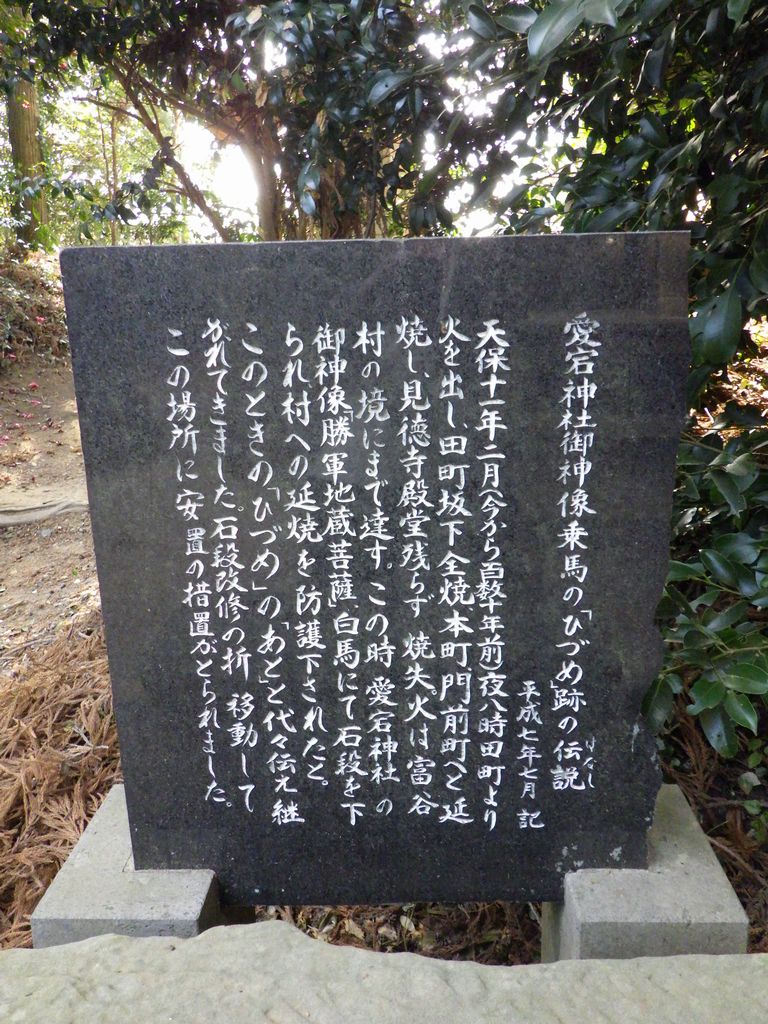 愛宕神社御神像乗馬の「ひづめ」跡の伝説
はなし
平成七年七月 記
天保十一年二月(今から百数十年前)夜八時田町より
火を出し、田町坂下全焼本町門前町へと延
焼し、見徳寺殿堂残らず焼失。火は富谷
村の境にまで達す。この時愛宕神社の
御神像「勝軍地蔵菩薩」、白馬にて石段を下
られ村への延焼を防護下されたと。
このときの「ひづめ」の「あと」と代々伝え継
がれてきました。石段改修の折移動して
この場所に安置の措置がとられました。